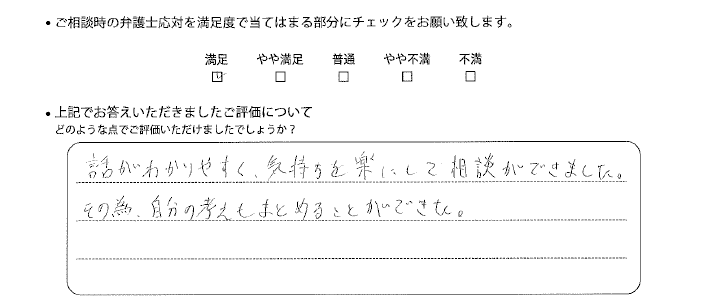 • ご相談時の弁護士応対を満足度で当てはまる部分にチェックをお願い致します。
満足 やや満足 普通 やや不満 不満
☑ □ □ □ □
• 上記でお答えいただきましたご評価について
どのような点でご評価いただけましたでしょうか？
話がわかりやすく、気持ちを楽にして相談ができました。
その為、自分の考えもまとめることができた。